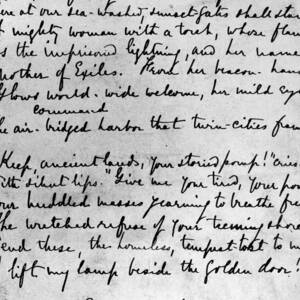 ere at our sea-washed, sunset-gates shall stan
mighty woman with a torch, whose flam
s the imprisoned lightning, and her name
other of Exiles. From her beacon-hand
lows world-wide welcome, her mild eye
command
he air-bridged harbor that twin-cities fram
Keep, ancient lands, your storied pomp!" cries
ith silent lips. "Give me your tired, your poo
our huddled masses yearning to breathe free
he wretched refuse of your teeming shore
end these, the homeless, tempest-tost to m
lift my lamp beside the golden door!